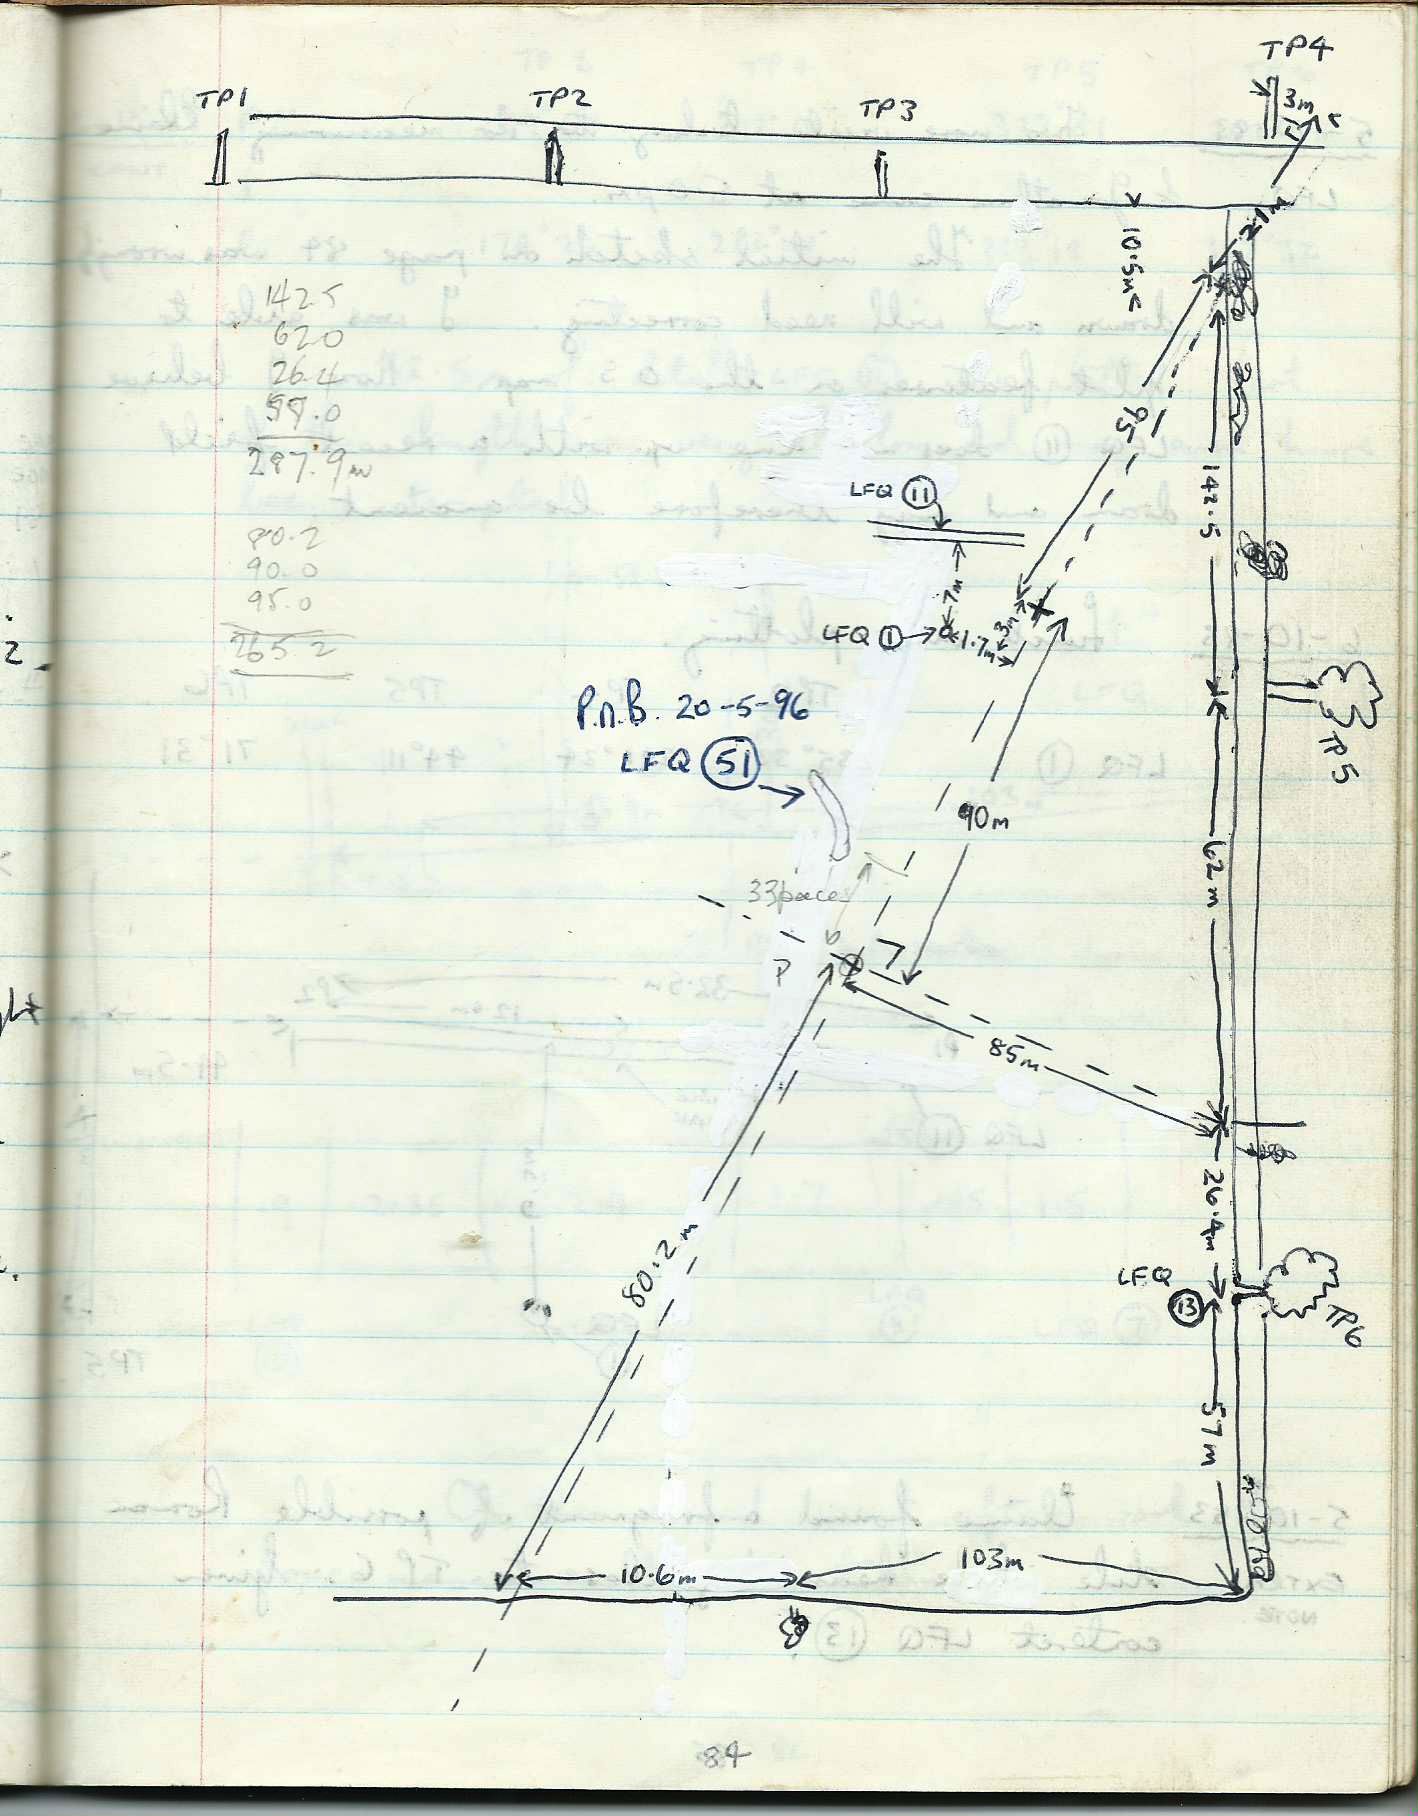 TP4
TP1
TP2
TP3
3m
21m
10.5m
142.5
62.0
26.4
57.0
287.9m
80.2
90.0
95.0
265.2
95
142.5
LFQ 11
7m
LFQ 1
1.7m
3m
TP5
P.M.B. 20-5-96
LFQ 51
90m
62m
33 paces
P
85m
26.4m
LFQ
13
TP6
80.2m
57m
10.6m
103m
84